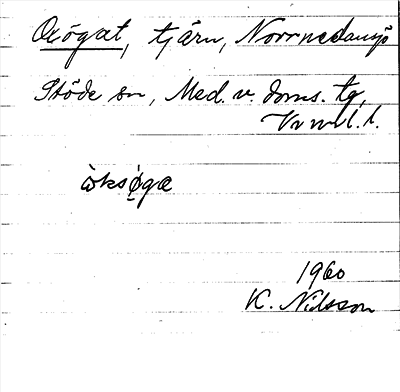 Oxögat, tjärn, Norrnedansjö
Stöde sn, Med. v. doms. tg,
Vrnl. l.
òksǫ́gæ
1960
K. Nilsson